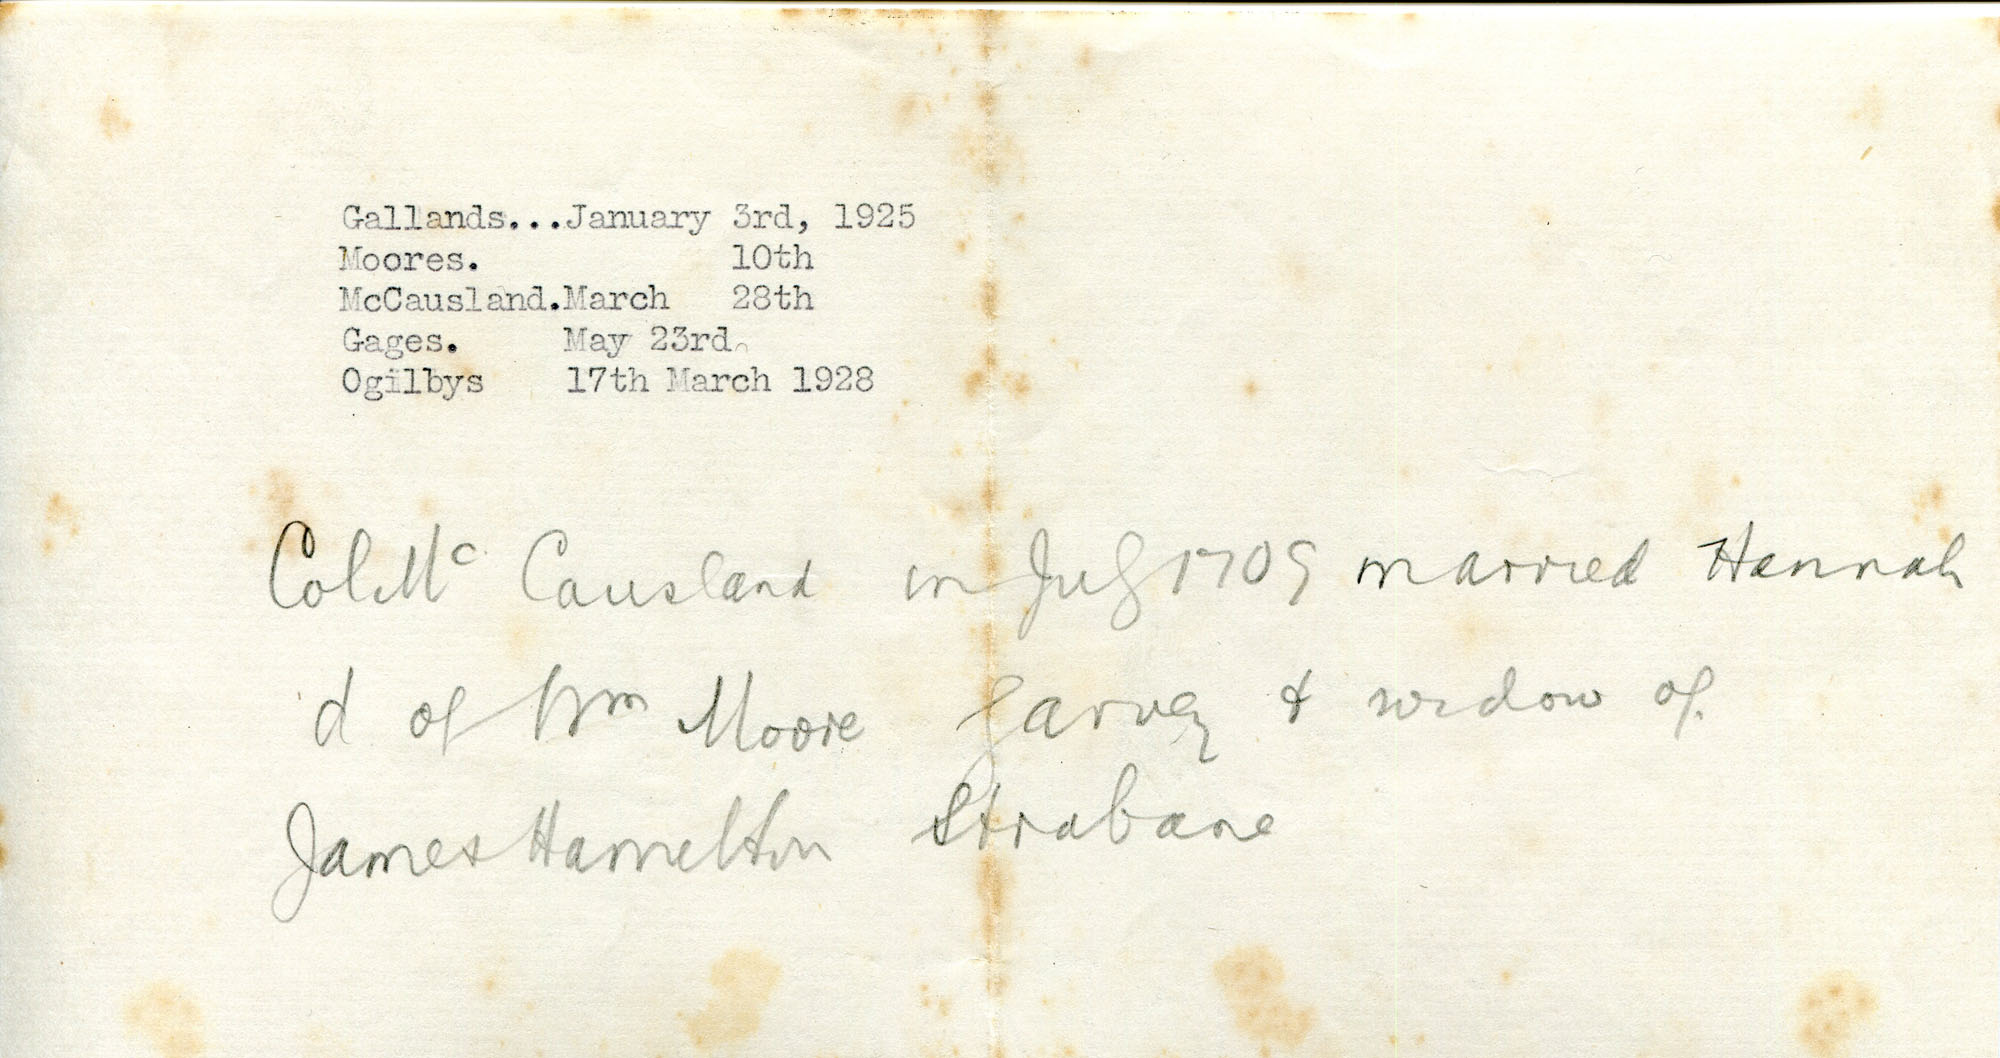 Gallands...January 3rd, 1925
Moores. 10th
McCausland.March 28th
Gages. May 23rd.
Ogilbys 17th March 1928
Col Mc Causland in July 1709 married Hannah
d of Wm Moore Garvey & widow of
James Hamelton Strabane